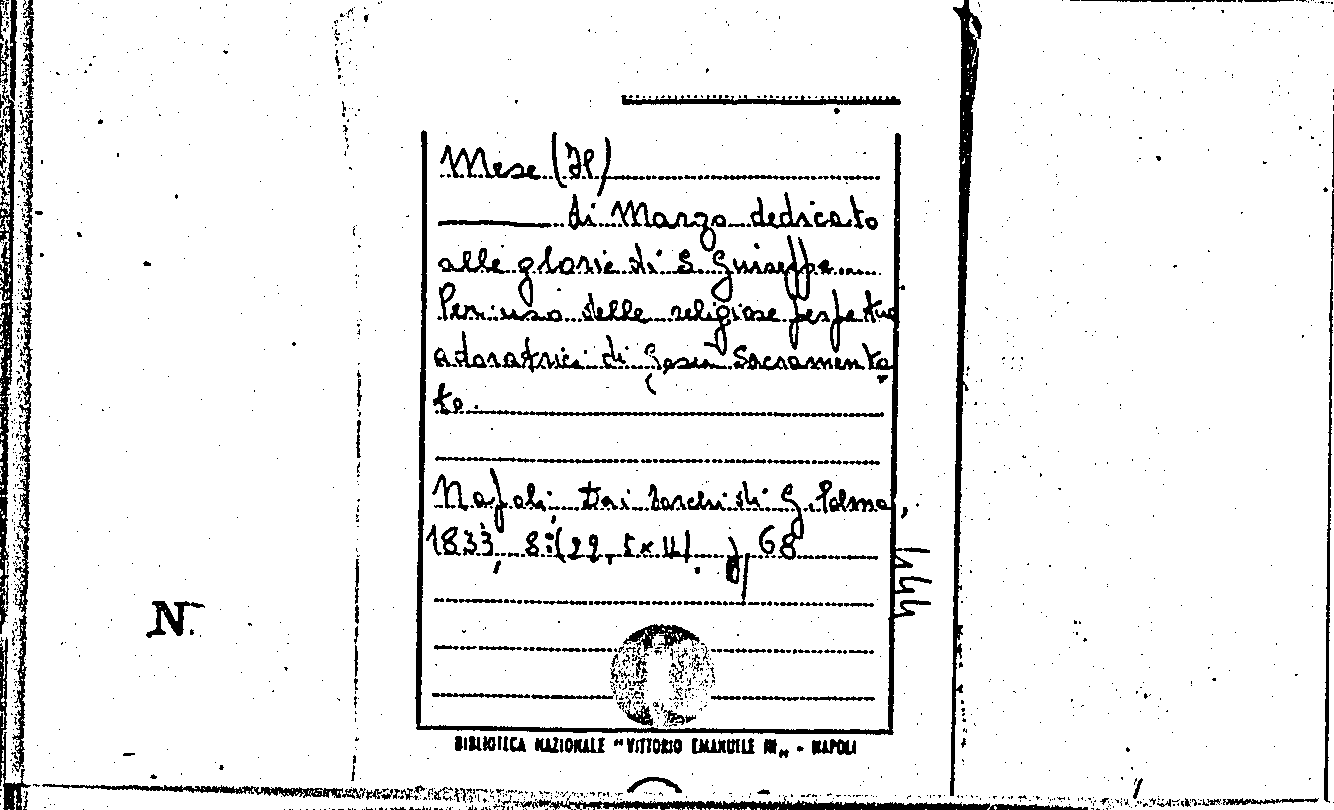 Mese (Il)
di Marzo dedicato
alle glorie di S. Giuseppe....
Per uso delle religiose perpetue
adoratrici di Gesù Sacramenta
to.
Napoli, Dai torchi di G. Palma,
1833, 8:(22,5x14). p, 68
444
N.
BIBLIOTECA NAZIONALE "VITTORIO EMANUELE III„ - NAPOLI